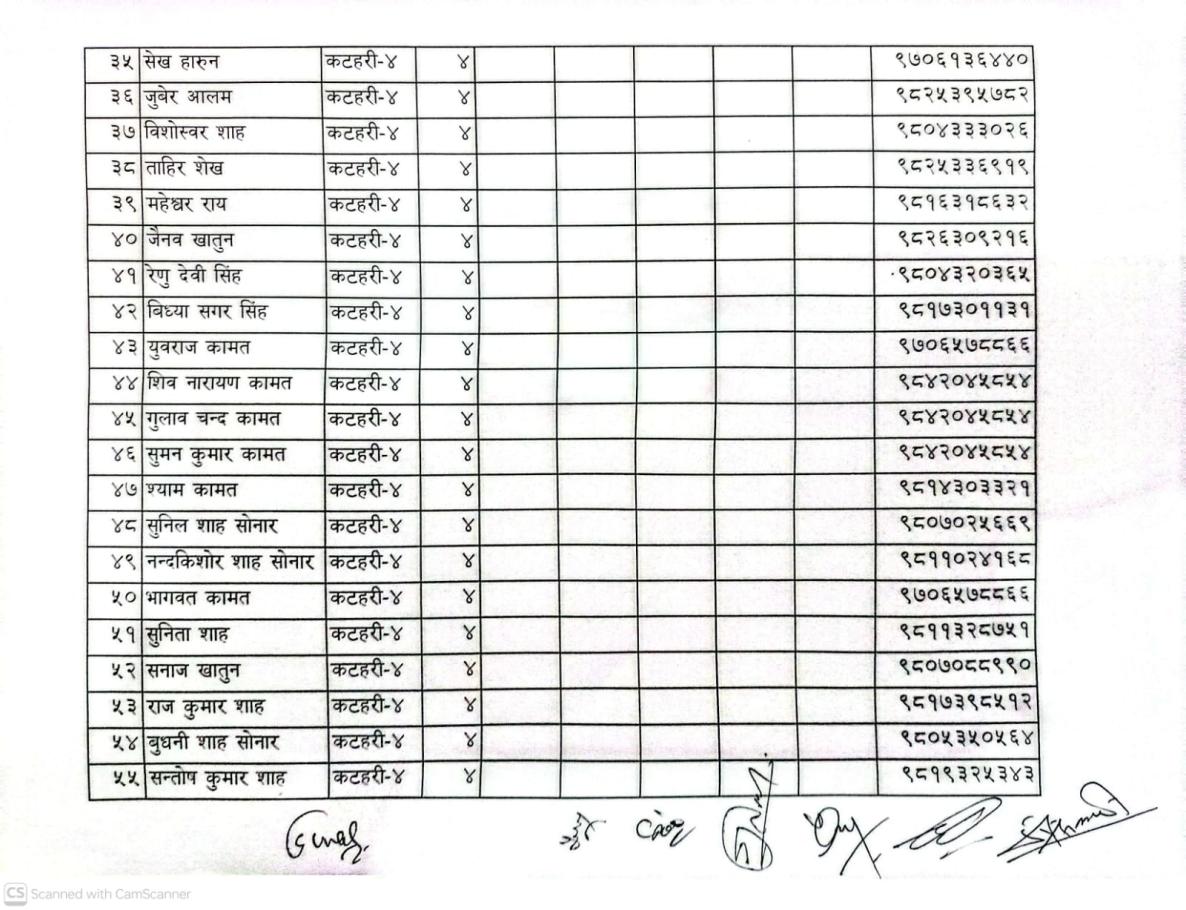 ३५ सेख हारुन कटहरी-४ ४ ९७०६१३६४४०
३६ जुबेर आलम कटहरी-४ ४ ९८२५३९५७८२
३७ विशोस्वर शाह कटहरी-४ ४ ९८०४३३३०२६
३८ ताहिर शेख कटहरी-४ ४ ९८२५३३६९१९
३९ महेश्वर राय कटहरी-४ ४ ९८१६३१८६३२
४० जैनव खातुन कटहरी-४ ४ ९८२६३०९२१६
४१ रेणु देवी सिंह कटहरी-४ ४ ९८०४३२०३६५
४२ बिध्या सगर सिंह कटहरी-४ ४ ९८१७३०११३१
४३ युवराज कामत कटहरी-४ ४ ९७०६५७८८६६
४४ शिव नारायण कामत कटहरी-४ ४ ९८४२०४५८५४
४५ गुलाव चन्द कामत कटहरी-४ ४ ९८४२०४५८५४
४६ सुमन कुमार कामत कटहरी-४ ४ ९८४२०४५८५४
४७ श्याम कामत कटहरी-४ ४ ९८१४३०३३२१
४८ सुनिल शाह सोनार कटहरी-४ ४ ९८०७०२५६६९
४९ नन्दकिशोर शाह सोनार कटहरी-४ ४ ९८११०२४१६८
५० भागवत कामत कटहरी-४ ४ ९७०६५७८८६६
५१ सुनिता शाह कटहरी-४ ४ ९८११३२८७५१
५२ सनाज खातुन कटहरी-४ ४ ९८०७०८८९९०
५३ राज कुमार शाह कटहरी-४ ४ ९८१७३९८५१२
५४ बुधनी शाह सोनार कटहरी-४ ४ ९८०५३५०५६४
५५ सन्तोष कुमार शाह कटहरी-४ ४ ९८१९३२५३४३
CS Scanned with CamScanner